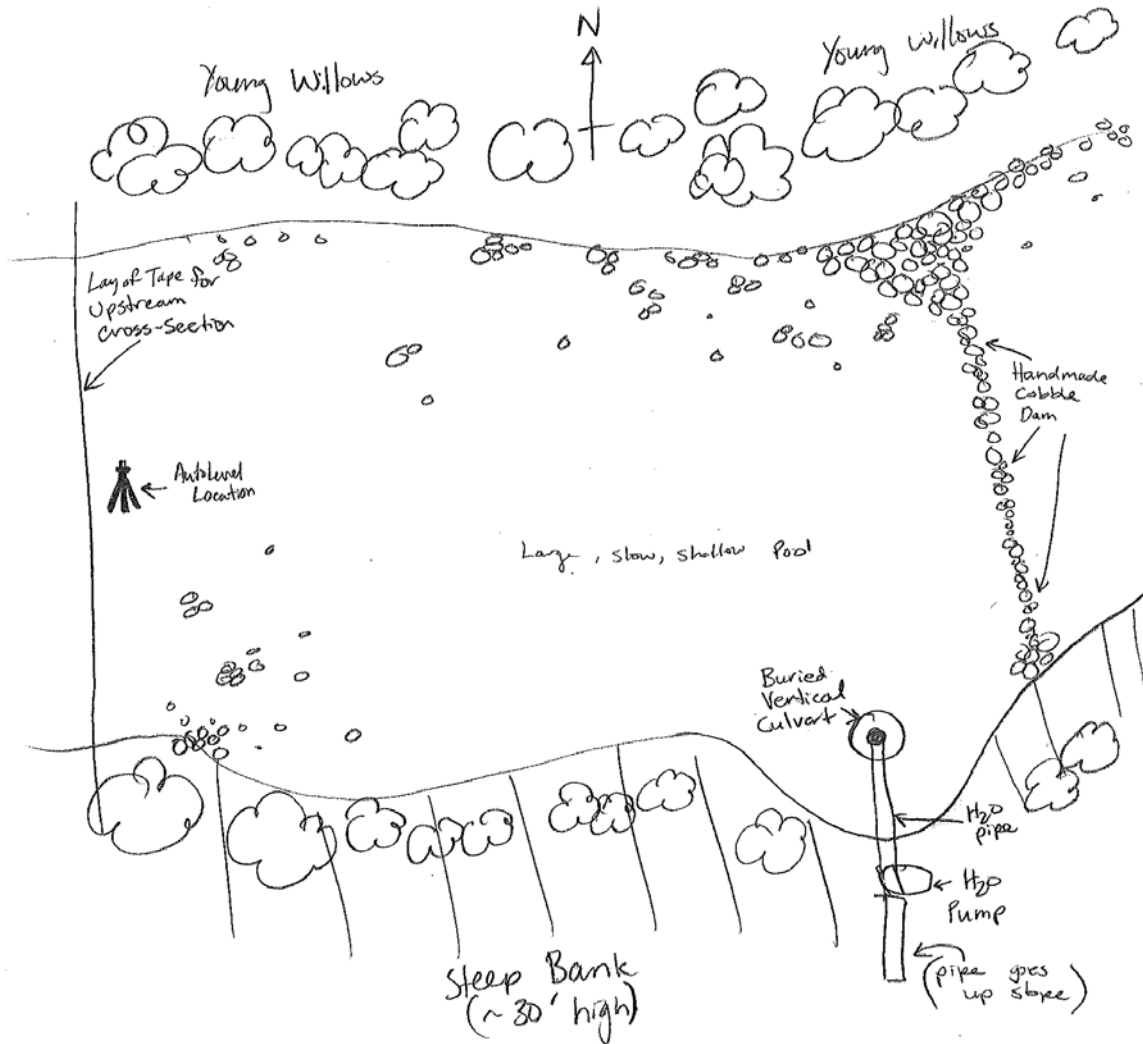 N
Young Willows
Young Willows
Lay of Tape for
Upstream
Cross-Section
Handmade
Cobble
Dam
AutoLevel
Location
Large, slow, shallow Pool
Buried
Vertical
Culvert
H2O
pipe
H2O
Pump
(pipe goes
up slope)
Steep Bank
(~30' high)